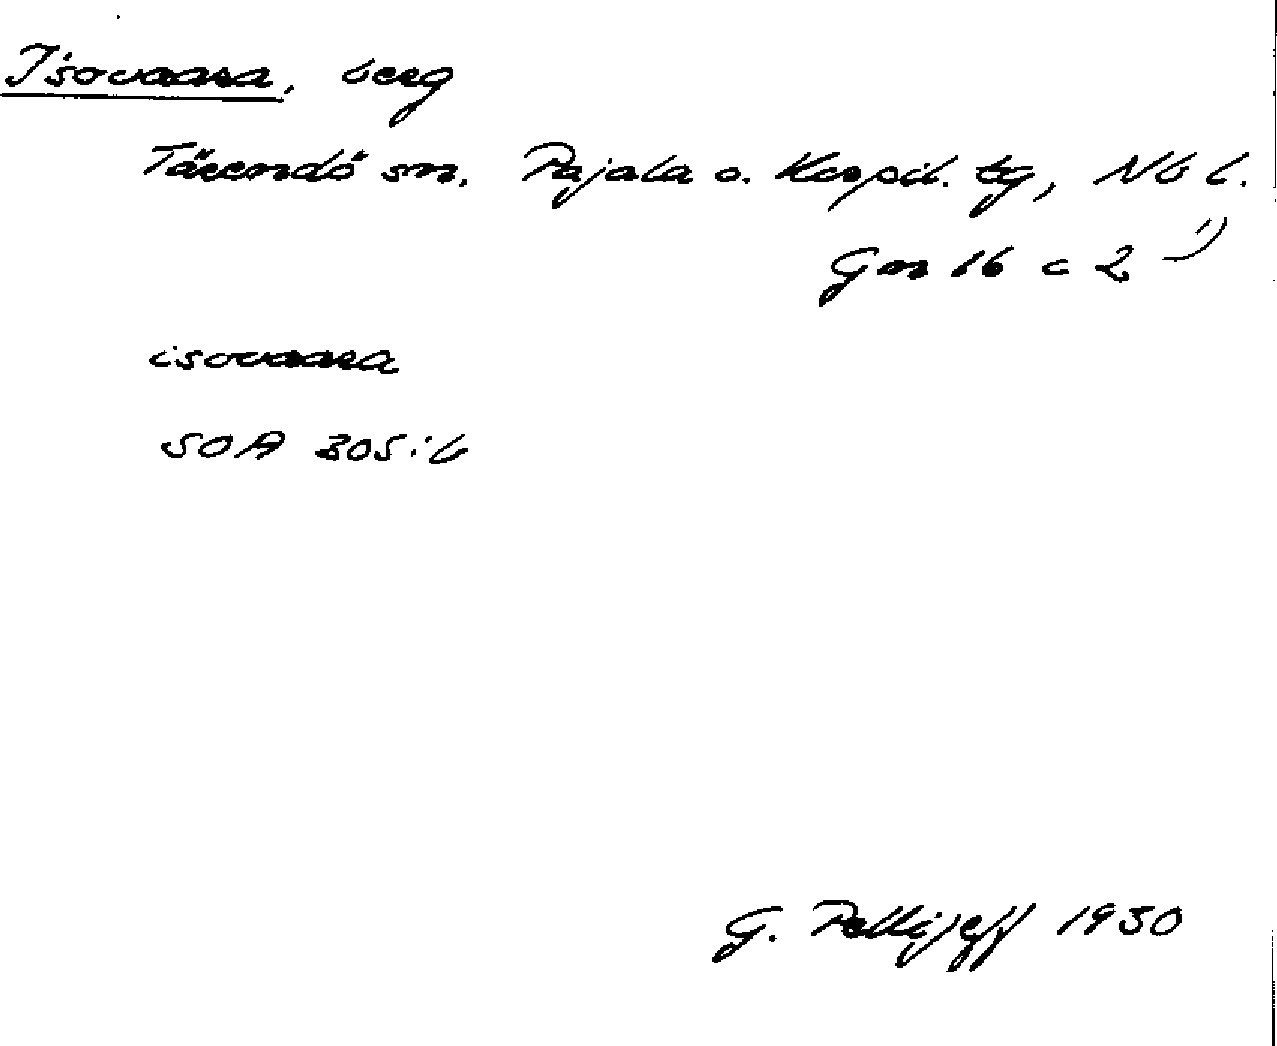 Isovaara, berg
Tärendö sn. Pajala o. Korpil. tg, Nb l.
Gm 16 c 2 1)
isovaara
SOA 305:6
G. Pellijeff 1950